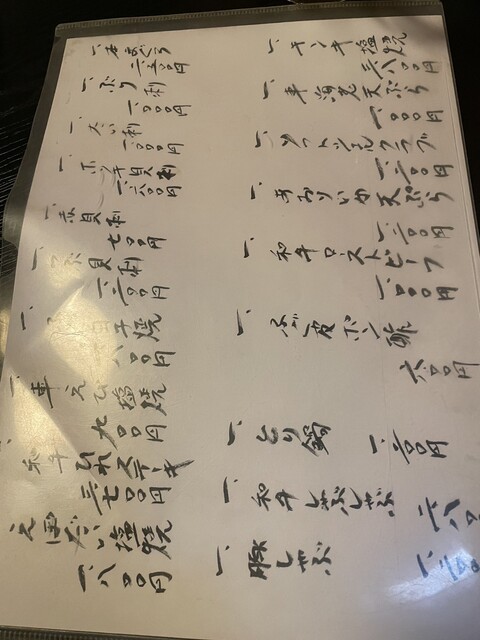 一、本まぐろ
二、五〇〇円
一、ぶり刺
一、〇〇〇円
一、たい刺
一、〇〇〇円
一、ホッキ貝刺
一、六〇〇円
一、赤貝刺
七〇〇円
一、つぶ貝刺
一、二〇〇円
一、白子焼
八〇〇円
一、車えび塩焼
九〇〇円
和牛ひれステーキ
三七〇〇円
塩焼
一、八〇〇円
一、キンキ塩焼
三八〇〇円
一、車海老天ぷら
一、〇〇〇円
一、ソフトシェルクラブ
一、二〇〇円
一、あおりいか天ぷら
一、二〇〇円
一、和牛ローストビーフ
一、〇〇〇円
一、ふぐ皮ポン酢
六〇〇円
一、とり鍋 一、二〇〇円
一、和牛しゃぶしゃぶ
一、豚しゃぶ